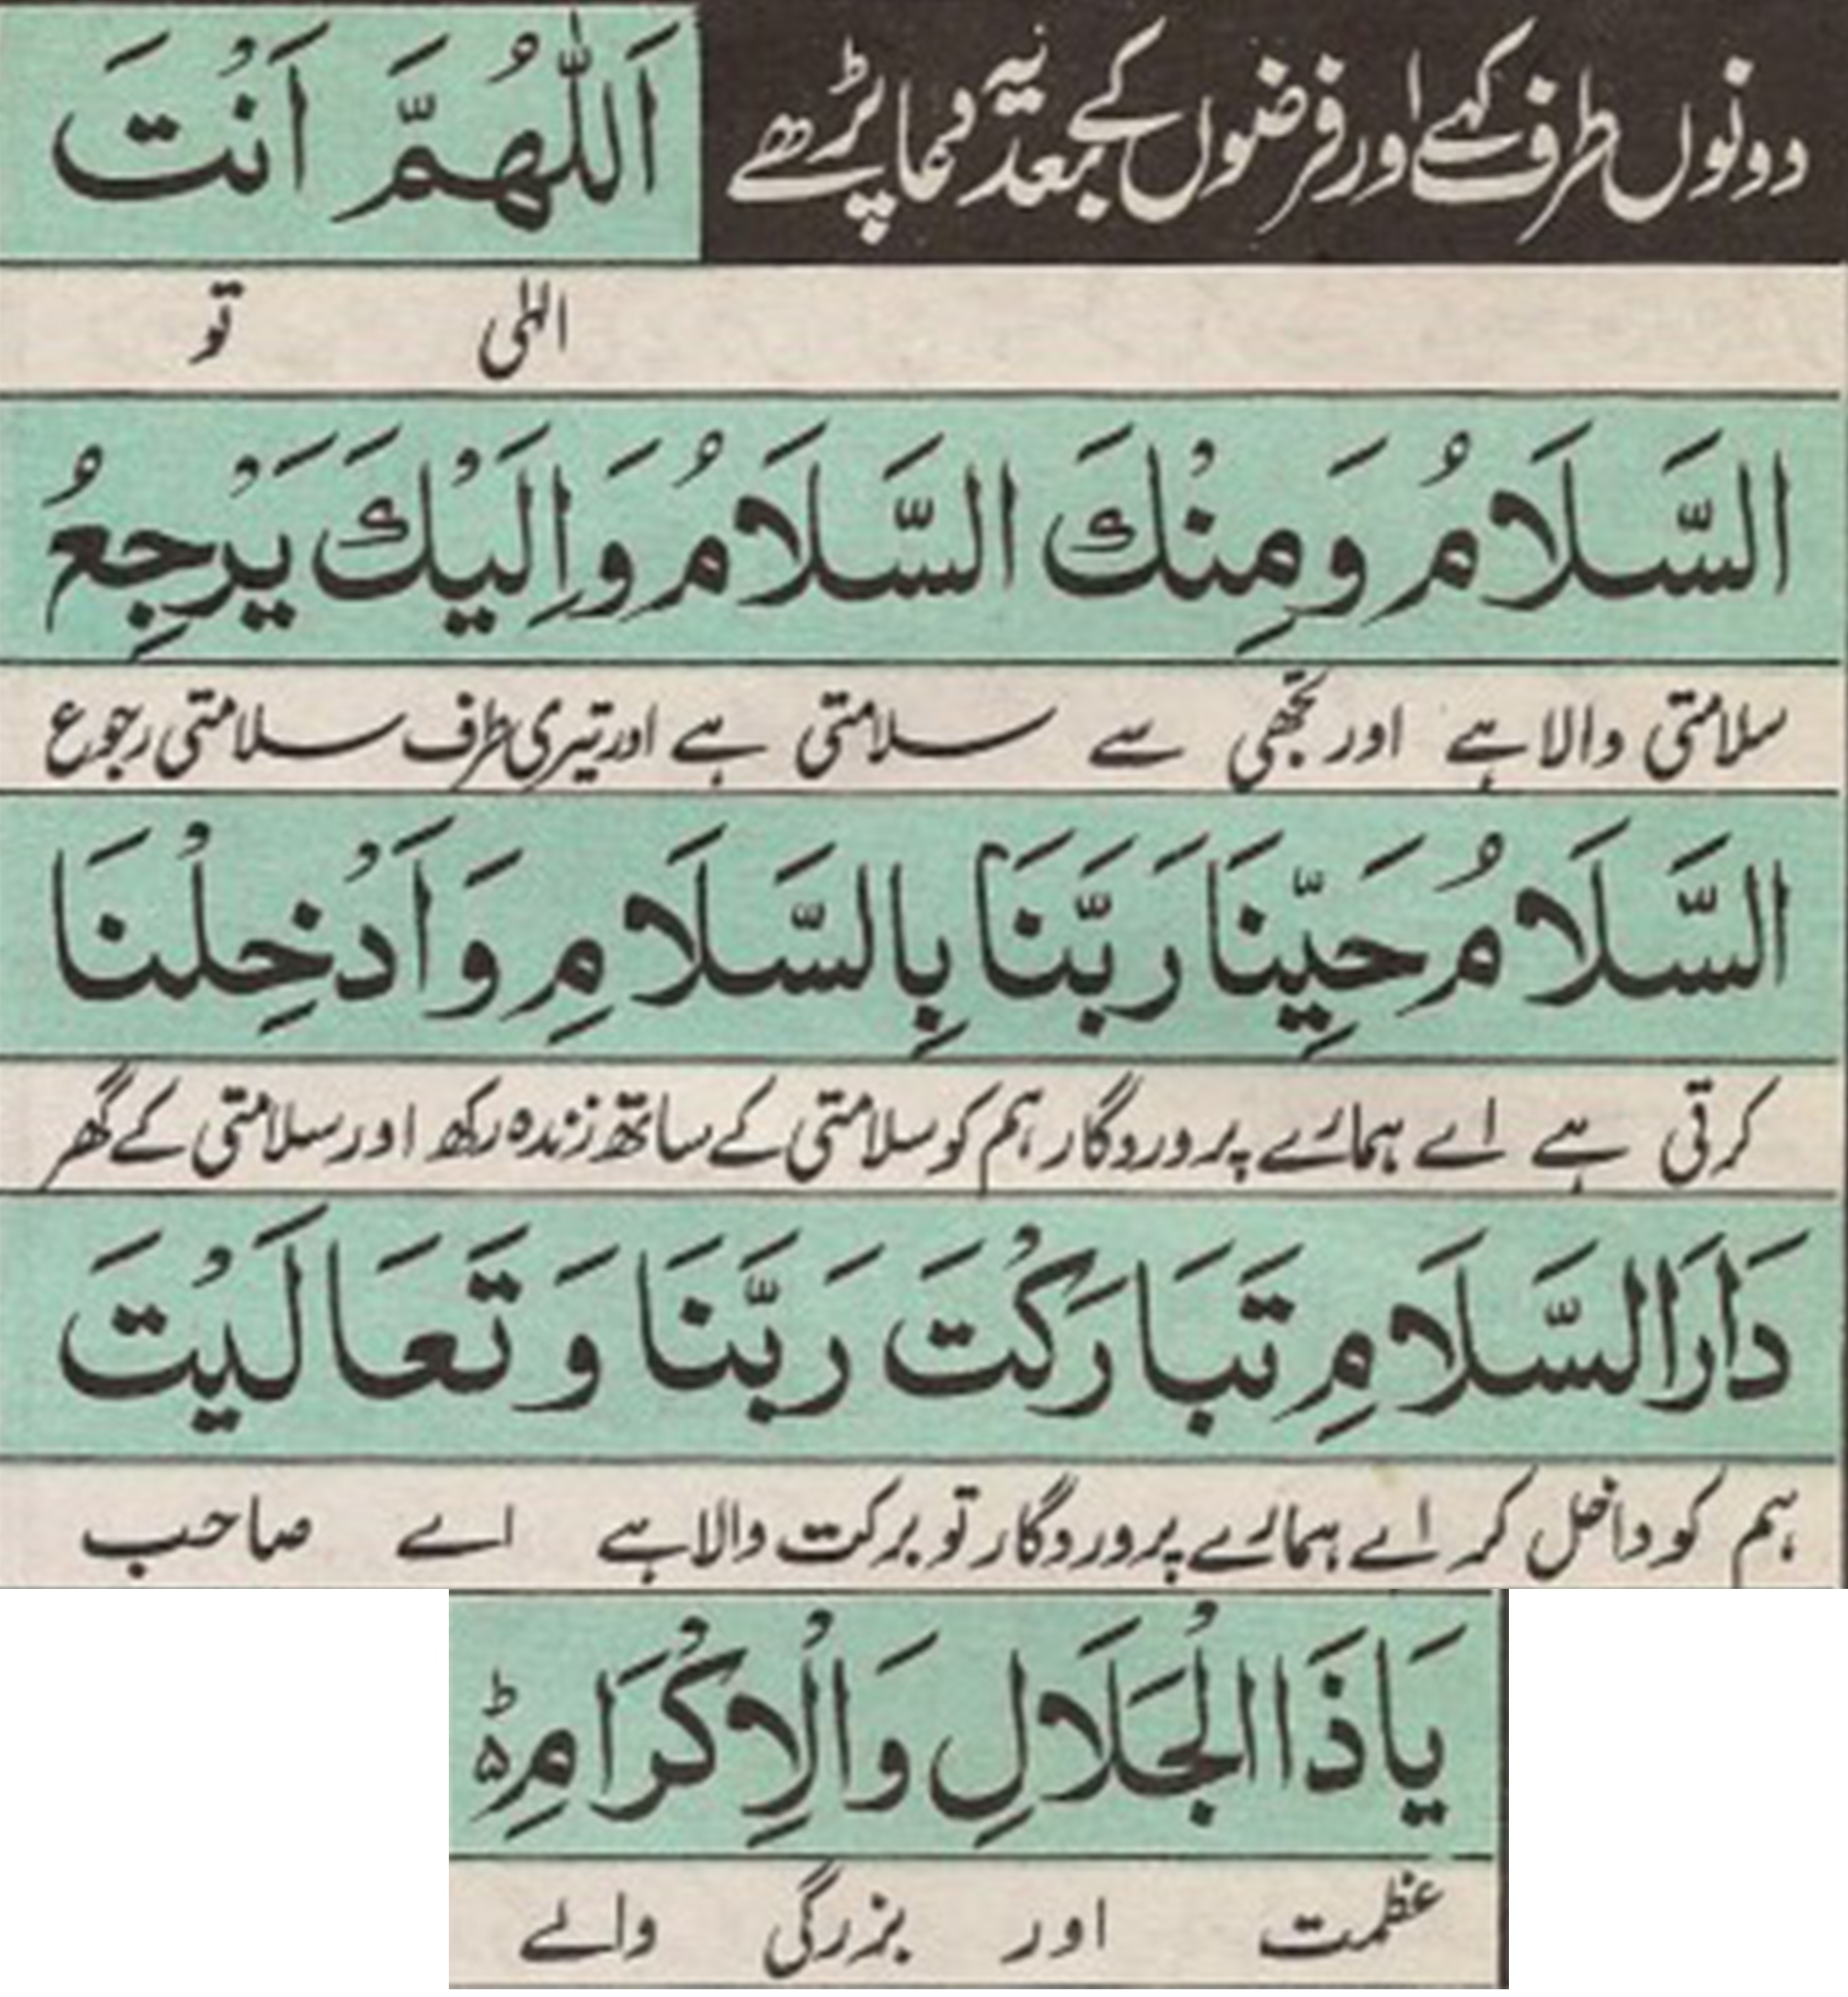 دونوں طرف کہے اور فرضوں کے بعد یہ دعا پڑھے اَللّٰهُمَّ اَنْتَ
الٰہی تو
السَّلَامُ وَمِنْكَ السَّلَامُ وَاِلَيْكَ يَرْجِعُ
سلامتی والا ہے اور تجھی سے سلامتی ہے اور تیری طرف سلامتی رجوع
السَّلَامُ حَيِّنَا رَبَّنَا بِالسَّلَامِ وَاَدْخِلْنَا
کرتی ہے اے ہمارے پروردگار ہم کو سلامتی کے ساتھ زندہ رکھ اور سلامتی کے گھر
دَارَالسَّلَامِ تَبَارَكْتَ رَبَّنَا وَتَعَالَيْتَ
ہم کو داخل کر اے ہمارے پروردگار تو برکت والا ہے اے صاحب
يَاذَاالْجَلَالِ وَالْاِكْرَامِ ؕ
عظمت اور بزرگی والے